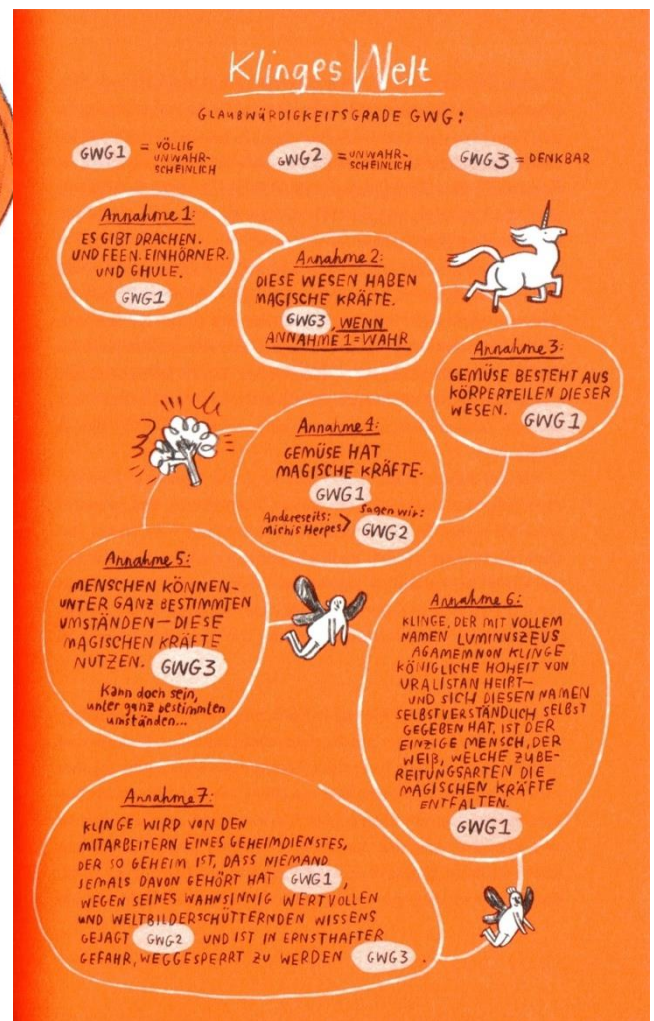 Klinges Welt
GLAUBWÜRDIGKEITSGRADE GWG:
GWG1 = VÖLLIG
UNWAHR-
SCHEINLICH
GWG2 = UNWAHR-
SCHEINLICH
GWG3 = DENKBAR
Annahme 1:
ES GIBT DRACHEN.
UND FEEN. EINHÖRNER.
UND GHULE.
GWG1
Annahme 2:
DIESE WESEN HABEN
MAGISCHE KRÄFTE.
GWG3, WENN
ANNAHME 1 = WAHR
Annahme 3:
GEMÜSE BESTEHT AUS
KÖRPERTEILEN DIESER
WESEN. GWG1
Annahme 4:
GEMÜSE HAT
MAGISCHE KRÄFTE.
GWG1
Andererseits:
Michis Herpes
> Sagen wir:
GWG2
Annahme 5:
MENSCHEN KÖNNEN–
UNTER GANZ BESTIMMTEN
UMSTÄNDEN – DIESE
MAGISCHEN KRÄFTE
NUTZEN. GWG3
Kann doch sein,
unter ganz bestimmten
umständen...
Annahme 6:
KLINGE, DER MIT VOLLEM
NAMEN LUMINUSZEUS
AGAMEMNON KLINGE
KÖNIGLICHE HOHEIT VON
URALISTAN HEIßT–
UND SICH DIESEN NAMEN
SELBSTVERSTÄNDLICH SELBST
GEGEBEN HAT, IST DER
EINZIGE MENSCH, DER
WEIß, WELCHE ZUBE-
REITUNGSARTEN DIE
MAGISCHEN KRÄFTE
ENTFALTEN.
GWG1
Annahme 7:
KLINGE WIRD VON DEN
MITARBEITERN EINES GEHEIMDIENSTES,
DER SO GEHEIM IST, DASS NIEMAND
JEMALS DAVON GEHÖRT HAT GWG1,
WEGEN SEINES WAHNSINNIG WERTVOLLEN
UND WELTBILDERSCHÜTTERNDEN WISSENS
GEJAGT GWG2 UND IST IN ERNSTHAFTER
GEFAHR, WEGGESPERRT ZU WERDEN GWG3.